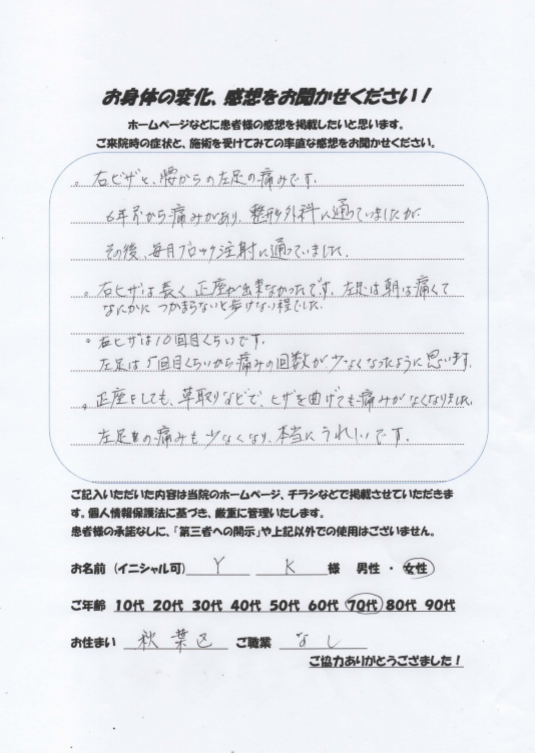 お身体の変化、感想をお聞かせください！
ホームページなどに患者様の感想を掲載したいと思います。
ご来院時の症状と、施術を受けてみての率直な感想をお聞かせください。
。右ヒザと、腰からの左足の痛みです。
6年前から痛みがあり、整形外科に通っていましたが
その後、毎月ブロック注射に通っていました。
。右ヒザは長く正座が出来なかったです。左足は朝は痛くて
なにかにつかまらないと歩けない程でした。
。右ヒザは10回目くらいです。
左足は5回目くらいから痛みの回数が少なくなったように思います。
。正座をしても、草取りなどで、ヒザを曲げても痛みがなくなりました。
左足の痛みも少なくなり、本当にうれしいです。
ご記入いただいた内容は当院のホームページ、チラシなどで掲載させていただきま
す。個人情報保護法に基づき、厳重に管理いたします。
患者様の承諾なしに、「第三者への開示」や上記以外での使用はございません。
お名前（イニシャル可） Y K 様 男性 ・ 女性
ご年齢 10代 20代 30代 40代 50代 60代 70代 80代 90代
お住まい 秋葉区 ご職業 なし
ご協力ありがとうございました！